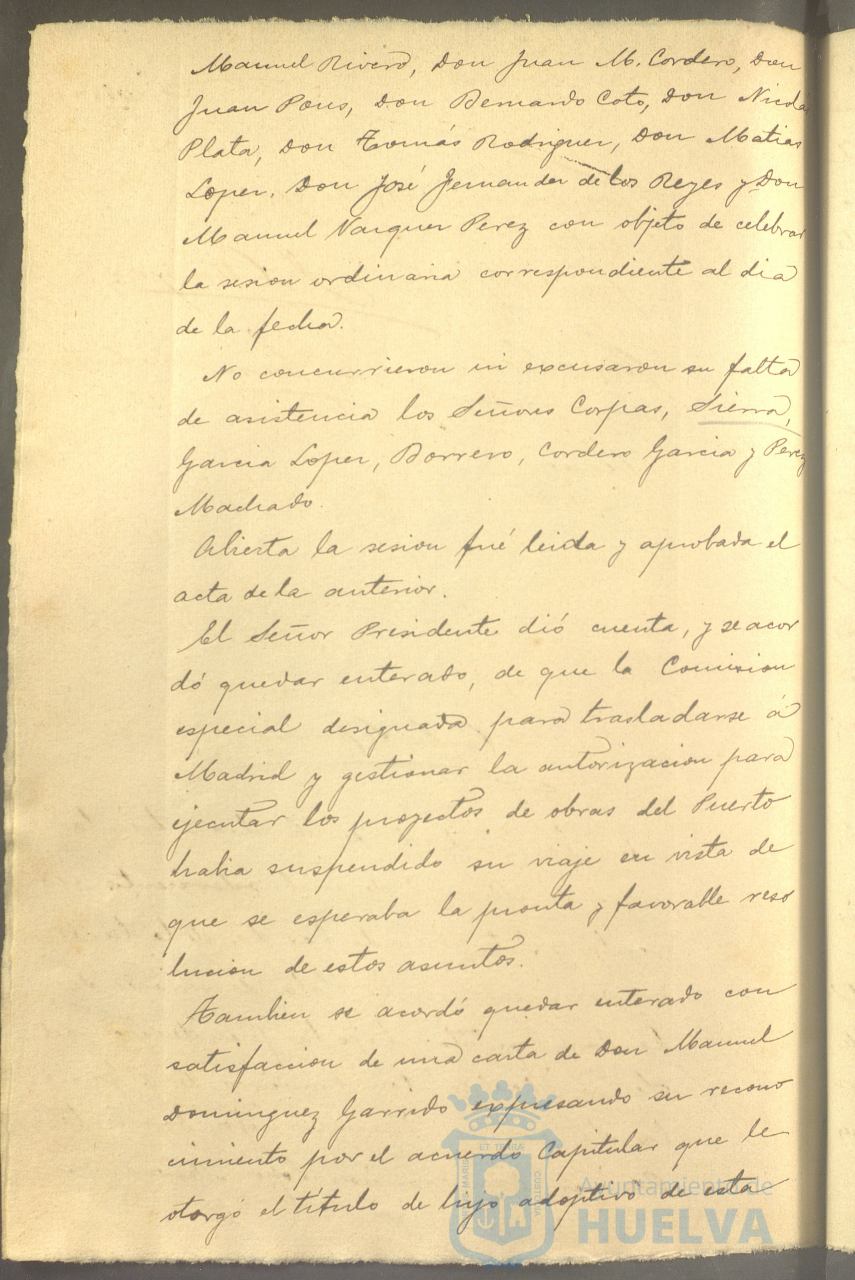 Manuel Rivero, Don Juan M. Cordero, Don
Juan Pons, Don Bernardo Coto, Don Nicolas
Plata, Don Tomás Rodriguez, Don Matias
Lopez, Don José Fernandez de los Reyes y Don
Manuel Vazquez Perez con objeto de celebrar
la sesion ordinaria correspondiente al dia
de la fecha.
No concurrieron ni excusaron su falta
de asistencia los Señores Corpas, Sierra,
Garcia Lopez, Borrero, Cordero Garcia y Perez
Machado.
Abierta la sesion fué leida y aprobada el
acta de la anterior.
El Señor Presidente dió cuenta, y se acor
dó quedar enterado, de que la Comision
especial designada para trasladarse á
Madrid y gestionar la autorizacion para
ejecutar los proyectos de obras del Puerto
habia suspendido su viaje en vista de
que se esperaba la pronta y favorable reso
lucion de estos asuntos.
Tambien se acordó quedar enterado con
satisfaccion de una carta de Don Manuel
Dominguez Garrido expresando su recono
cimiento por el acuerdo Capitular que le
otorgó el título de hijo adoptivo de esta
Ayuntamiento de
HUELVA